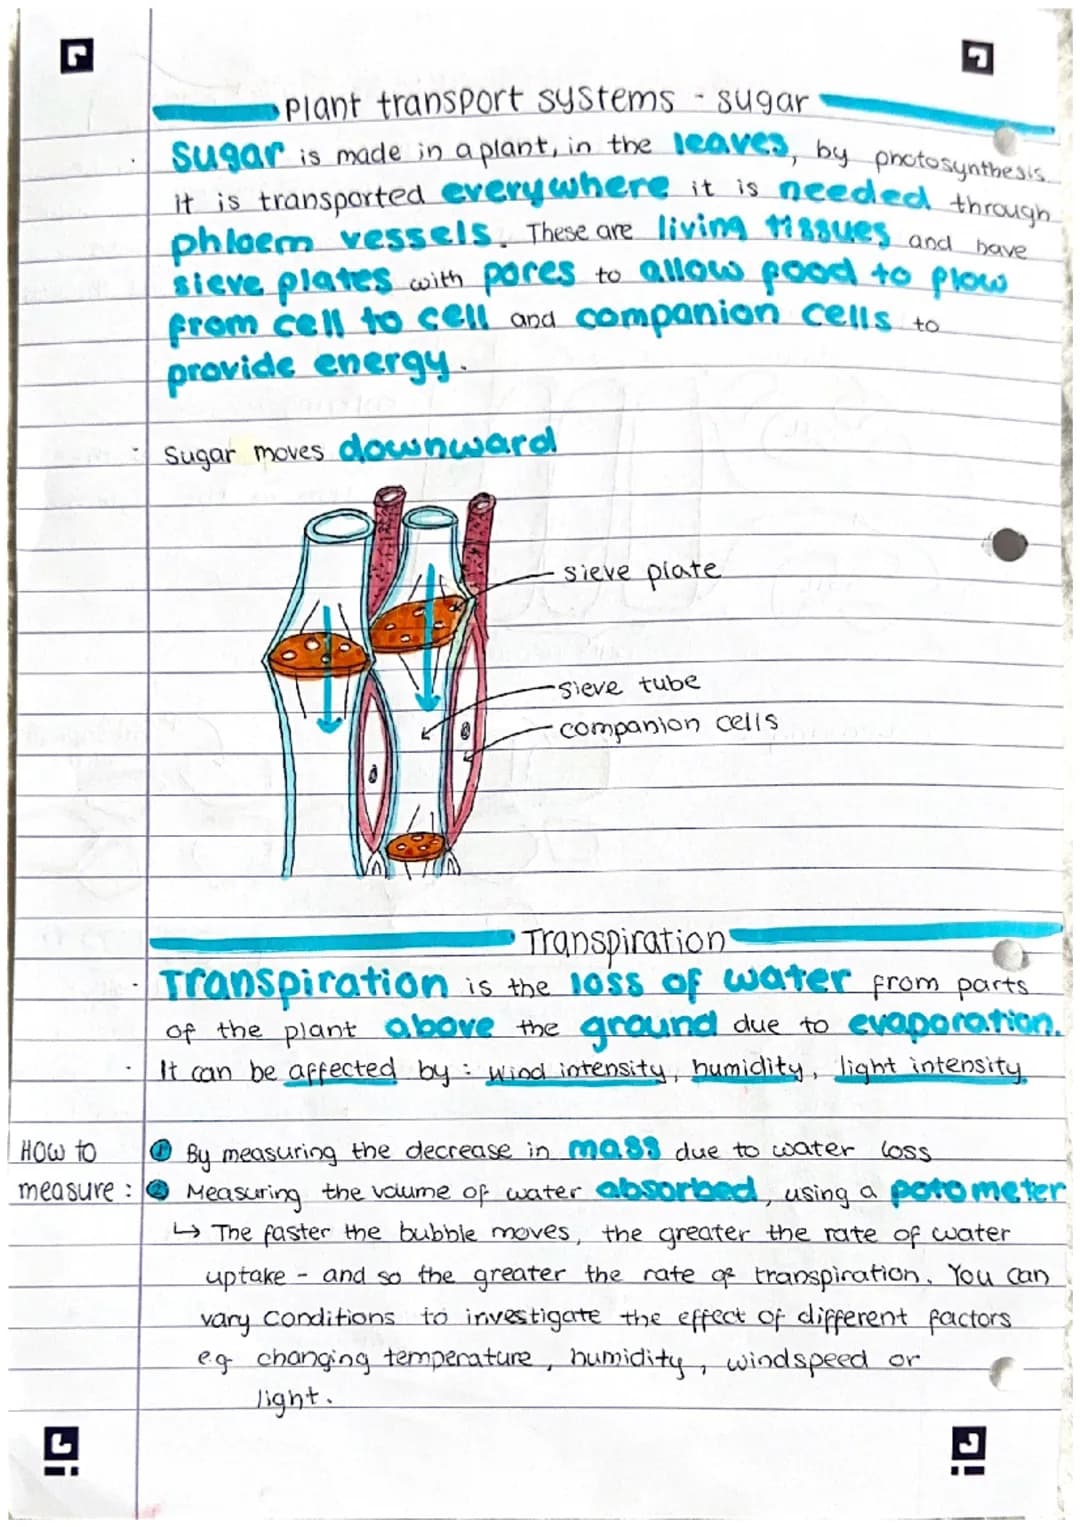 Plant transport systems - sugar
Sugar is made in a plant, in the leaves, by photosynthesis.
It is transported everywhere it is needed through
phloem vessels. These are living tissues and have
sieve plates with pores to allow food to flow
from cell to cell and companion cells to
provide energy.
Sugar moves downward
sieve plate
sieve tube
companion cells
Transpiration
Transpiration is the loss of water from parts
of the plant above the ground due to evaporation.
It can be affected by : wind intensity, humidity, light intensity.
How to
measure :
① By measuring the decrease in mass due to water loss
② Measuring the volume of water absorbed, using a potometer
↳ The faster the bubble moves, the greater the rate of water
uptake - and so the greater the rate of transpiration. You can
vary conditions to investigate the effect of different factors
e.g changing temperature, humidity, windspeed or
light.